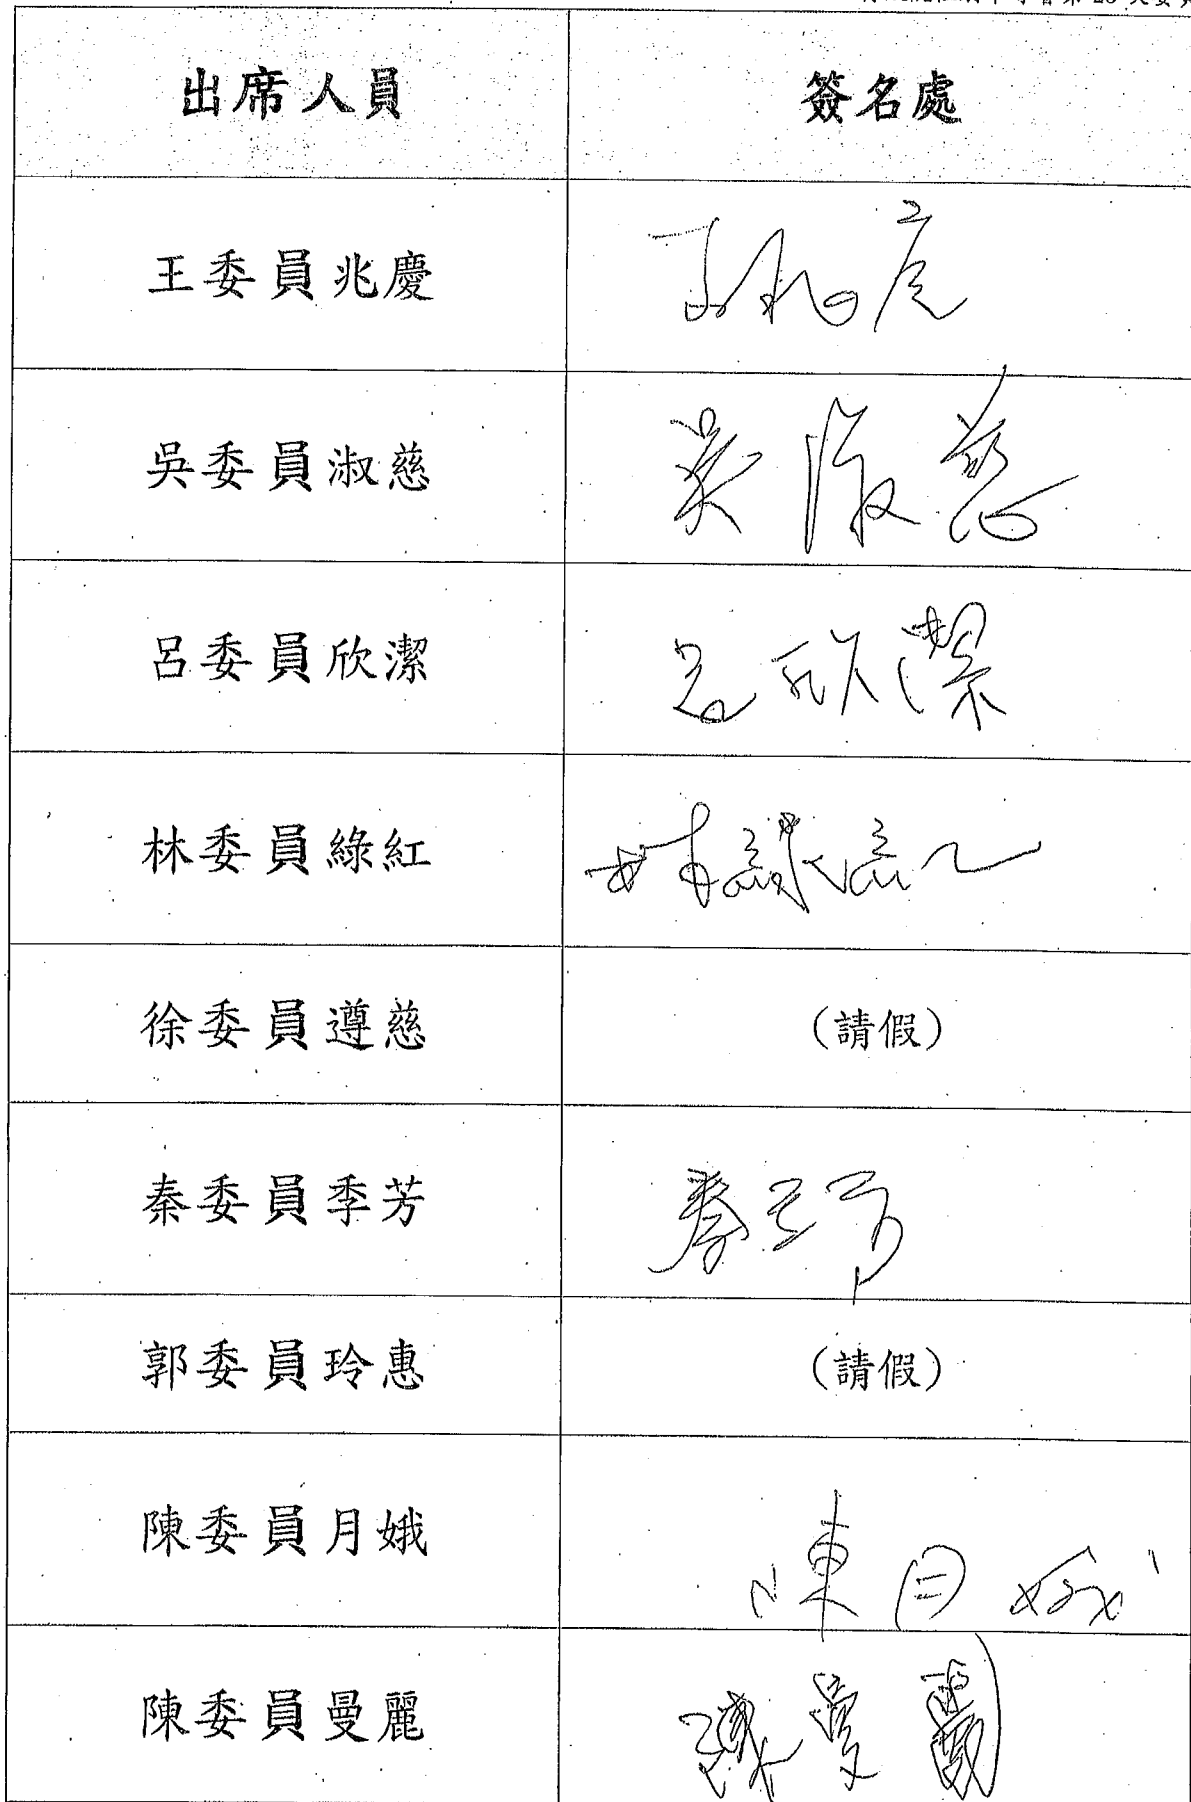 出席人員 簽名處
王委員兆慶 王兆慶
吳委員淑慈 吳淑慈
呂委員欣潔 呂欣潔
林委員綠紅 林綠紅
徐委員遵慈 (請假)
秦委員季芳 秦季芳
郭委員玲惠 (請假)
陳委員月娥 陳月娥
陳委員曼麗 陳曼麗